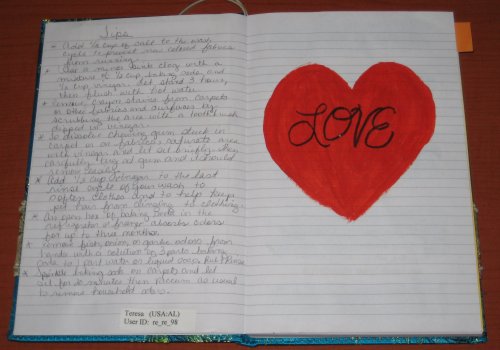 Tips
* Add ½ cup of salt to the wash
cycle to prevent new colored fabrics
from running.
* Clear a sink with a
mixture of ½ cup baking soda, and
½ cup vinegar. Let stand 3 hours,
then flush with hot water.
* Remove crayon stains from carpets
or other fabrics and surfaces by
scrubbing the area with a toothbrush
dipped in vinegar.
* To dissolve chewing gum stuck in
carpet or on fabrics saturate area
with vinegar and let sit briefly then
carefully tug at gum and it should
remove easily.
* Add ½ cup vinegar to the last
rinse cycle of your wash to
soften clothes and to help keep
pet hair from clinging to clothing.
* An open box of baking soda in the
refrigerator or freezer absorbs odors
for up to three months.
* Remove fish, onion, or garlic odors from
hands with a solution of 3 parts baking
soda to 1 part water or liquid soap. Rub & Rinse
* Sprinkle baking soda on carpets and let
sit for 20 minutes then vacuum as usual
to remove household odors.
Teresa (USA:AL)
User ID: re_re_98
LOVE